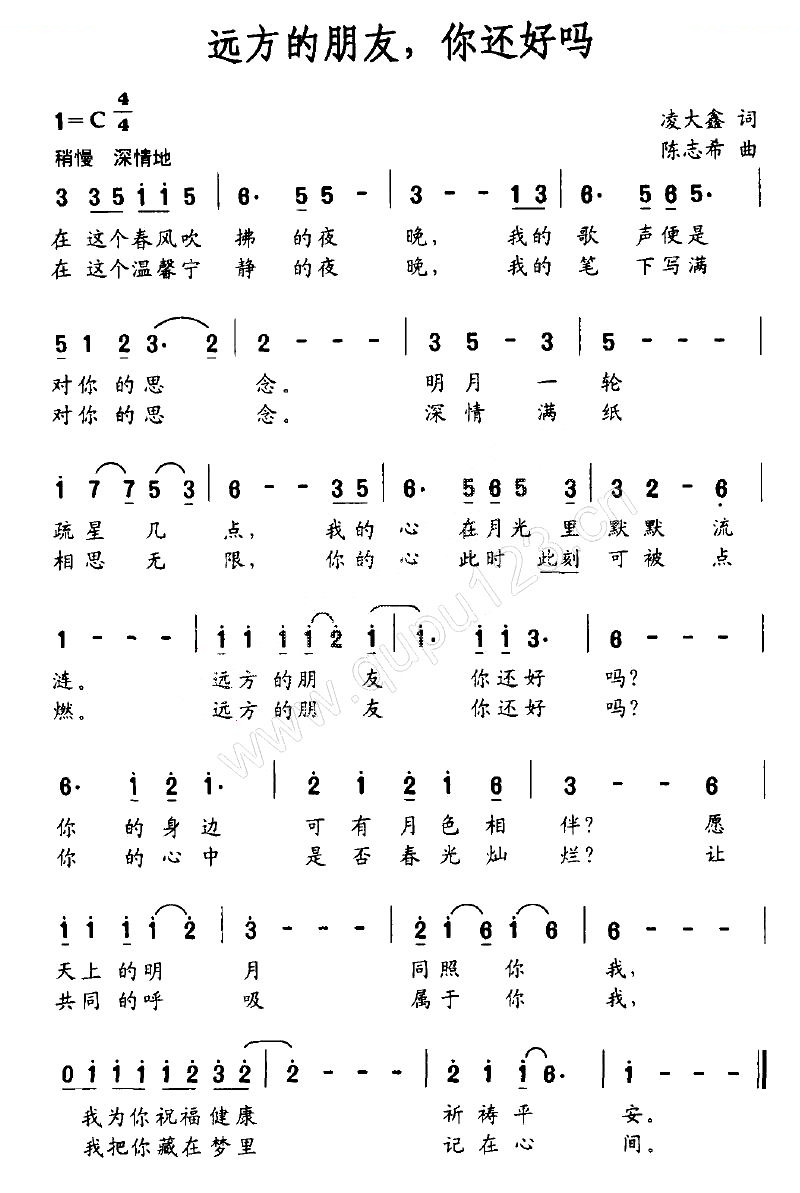 远方的朋友，你还好吗
1=C 4/4
凌大鑫 词
稍慢 深情地
陈志希 曲
3 3 5 i i 5 | 6· 5 5 | 3 - - 1 3 | 6· 5 6 5· |
在 这个春风吹 拂 的夜 晚， 我的 歌 声便是
在 这个温馨宁 静 的夜 晚， 我的 笔 下写满
5 1 2 3· 2 | 2 - - - | 3 5 - 3 | 5 - - - |
对你 的思 念。 明月 一 轮
对你 的思 念。 深情 满 纸
i 7 7 5 3 | 6 - - 3 5 | 6· 5 6 5 3 | 3 2 - 6 |
疏星 几 点， 我的 心 在月光 里 默默 流
相思 无 限， 你的 心 此时 此刻 可被 点
1 - - - | i i i i 2 i | i· i i 3· | 6 - - - |
涟。 远方的朋 友 你还好 吗？
燃。 远方的朋 友 你还好 吗？
6· i 2 i· | 2 i 2 i 6 | 3 - - 6 |
你 的身边 可有月色相 伴？ 愿
你 的心中 是否春光灿 烂？ 让
i i i i 2 | 3 - - - | 2 i 6 i 6 | 6 - - - |
天上 的明 月 同照 你 我，
共同 的呼 吸 属于 你 我，
0 i i i i 2 3 2 | 2 - - | 2 i i 6· | i - - ‖
我为你祝福健康 祈祷平 安。
我把你藏在梦里 记在心 间。
www.qupu123.cn